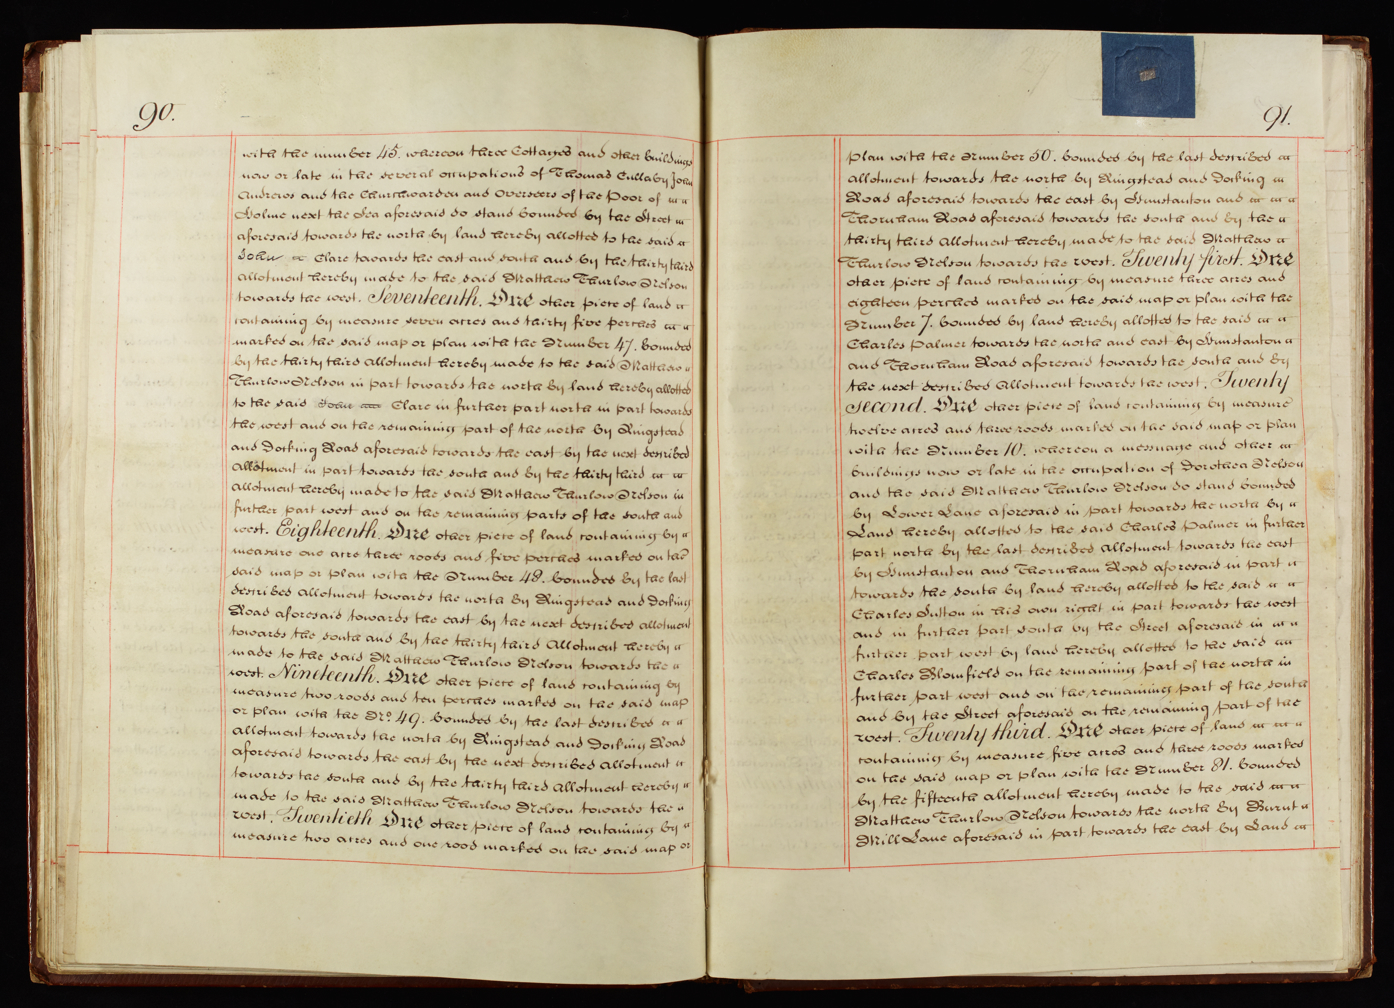 90.
with the number 45. whereon three Cottages and other buildings
now or late in the several occupations of Thomas Cullaby John
Andrews and the Churchwarden and Overseers of the Poor of
Holme next the Sea aforesaid do stand bounded by the Street
aforesaid towards the north by land hereby allotted to the said
John Clare towards the east and south and by the thirty third
allotment hereby made to the said Matthew Thurlow Nelson
towards the west. Seventeenth. One other piece of land
containing by measure seven acres and thirty five perches
marked on the said map or plan with the Number 47. bounded
by the thirty third allotment hereby made to the said Matthew
Thurlow Nelson in part towards the north by land hereby allotted
to the said John Clare in further part north in part towards
the west and on the remaining part of the north by Ringstead
and Docking Road aforesaid towards the east by the next described
allotment in part towards the south and by the thirty third
allotment hereby made to the said Matthew Thurlow Nelson in
further part west and on the remaining parts of the south and
west. Eighteenth. One other piece of land containing by
measure one acre three roods and five perches marked on the
said map or plan with the Number 48. bounded by the last
described allotment towards the north by Ringstead and Docking
Road aforesaid towards the east by the next described allotment
towards the south and by the thirty third Allotment hereby
made to the said Matthew Thurlow Nelson towards the
west. Nineteenth. One other piece of land containing by
measure two roods and ten perches marked on the said map
or plan with the No. 49. bounded by the last described
allotment towards the north by Ringstead and Docking Road
aforesaid towards the east by the next described allotment
towards the south and by the thirty third Allotment hereby
made to the said Matthew Thurlow Nelson towards the
west. Twentieth One other piece of land containing by
measure two acres and one rood marked on the said map or
91.
plan with the Number 50. bounded by the last described
allotment towards the north by Ringstead and Docking
Road aforesaid towards the east by Hunstanton and
Thornham Road aforesaid towards the south and by the
thirty third allotment hereby made to the said Matthew
Thurlow Nelson towards the west. Twenty first. One
other piece of land containing by measure three acres and
eighteen perches marked on the said map or plan with the
Number 7. bounded by land hereby allotted to the said
Charles Palmer towards the north and east by Hunstanton
and Thornham Road aforesaid towards the south and by
the next described allotment towards the west. Twenty
second. One other piece of land containing by measure
twelve acres and three roods marked on the said map or plan
with the Number 10. whereon a messuage and other
buildings now or late in the occupation of Dorothea Nelson
and the said Matthew Thurlow Nelson do stand bounded
by Lower Lane aforesaid in part towards the north by
Land hereby allotted to the said Charles Palmer in further
part north by the last described allotment towards the east
by Hunstanton and Thornham Road aforesaid in part
towards the south by land hereby allotted to the said
Charles Sutton in his own right in part towards the west
and in further part south by the Street aforesaid in
further part west by land hereby allotted to the said
Charles Blomfield on the remaining part of the north in
further part west and on the remaining part of the south
and by the Street aforesaid on the remaining part of the
west. Twenty third. One other piece of land
containing by measure five acres and three roods marked
on the said map or plan with the Number 81. bounded
by the fifteenth allotment hereby made to the said
Matthew Thurlow Nelson towards the north by Burnt
Mill Lane aforesaid in part towards the east by Land